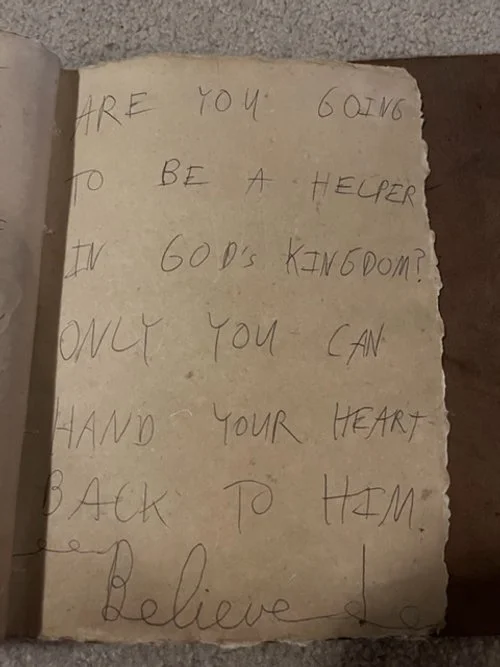 ARE YOU GOING
TO BE A HELPER
IN GOD'S KINGDOM?
ONLY YOU CAN
HAND YOUR HEART
BACK TO HIM.
Believe